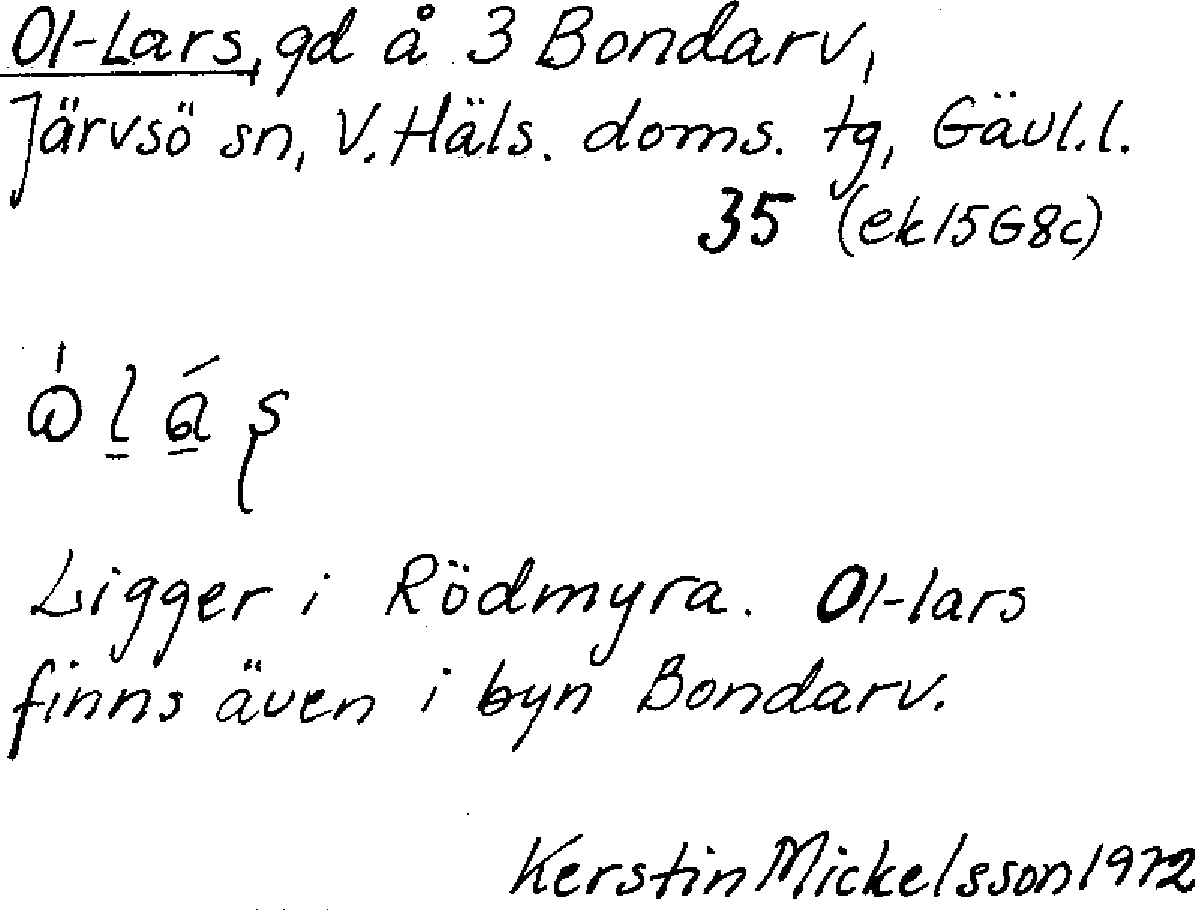 Ol-Lars, gd å 3 Bondarv,
Järvsö sn, V. Häls. doms. tg, Gävl.l.
35 (ek 15G8c)
Ligger i Rödmyra. Ol-lars
finns även i byn Bondarv.
Kerstin Mickelsson 1972